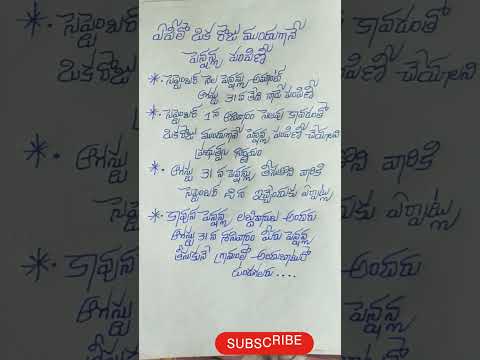 ఏపీలో ఒక రోజు ముందుగానే
పెన్షన్ల పంపిణీ
* సెప్టెంబర్ నెల పెన్షన్లు అవ్వాతాత
ఆగస్టు 31న తేదీ నాడే పంపిణీ
* సెప్టెంబర్ 1న ఆదివారం సెలవు కావడంతో
ఒకరోజు ముందుగానే పెన్షన్ల పంపిణీ చేయాలని
ప్రభుత్వం నిర్ణయం
* ఆగస్టు 31న పెన్షన్లు తీసుకోని వారికి
సెప్టెంబర్ 2న ఇచ్చేందుకు ఏర్పాట్లు
* కావున పెన్షన్ల లబ్ధిదారులు అందరు
ఆగస్టు 31న శనివారం మీరు పెన్షన్ల
తీసుకునే గ్రామంలో అందుబాటులో
ఉండగలరు ....
SUBSCRIBE